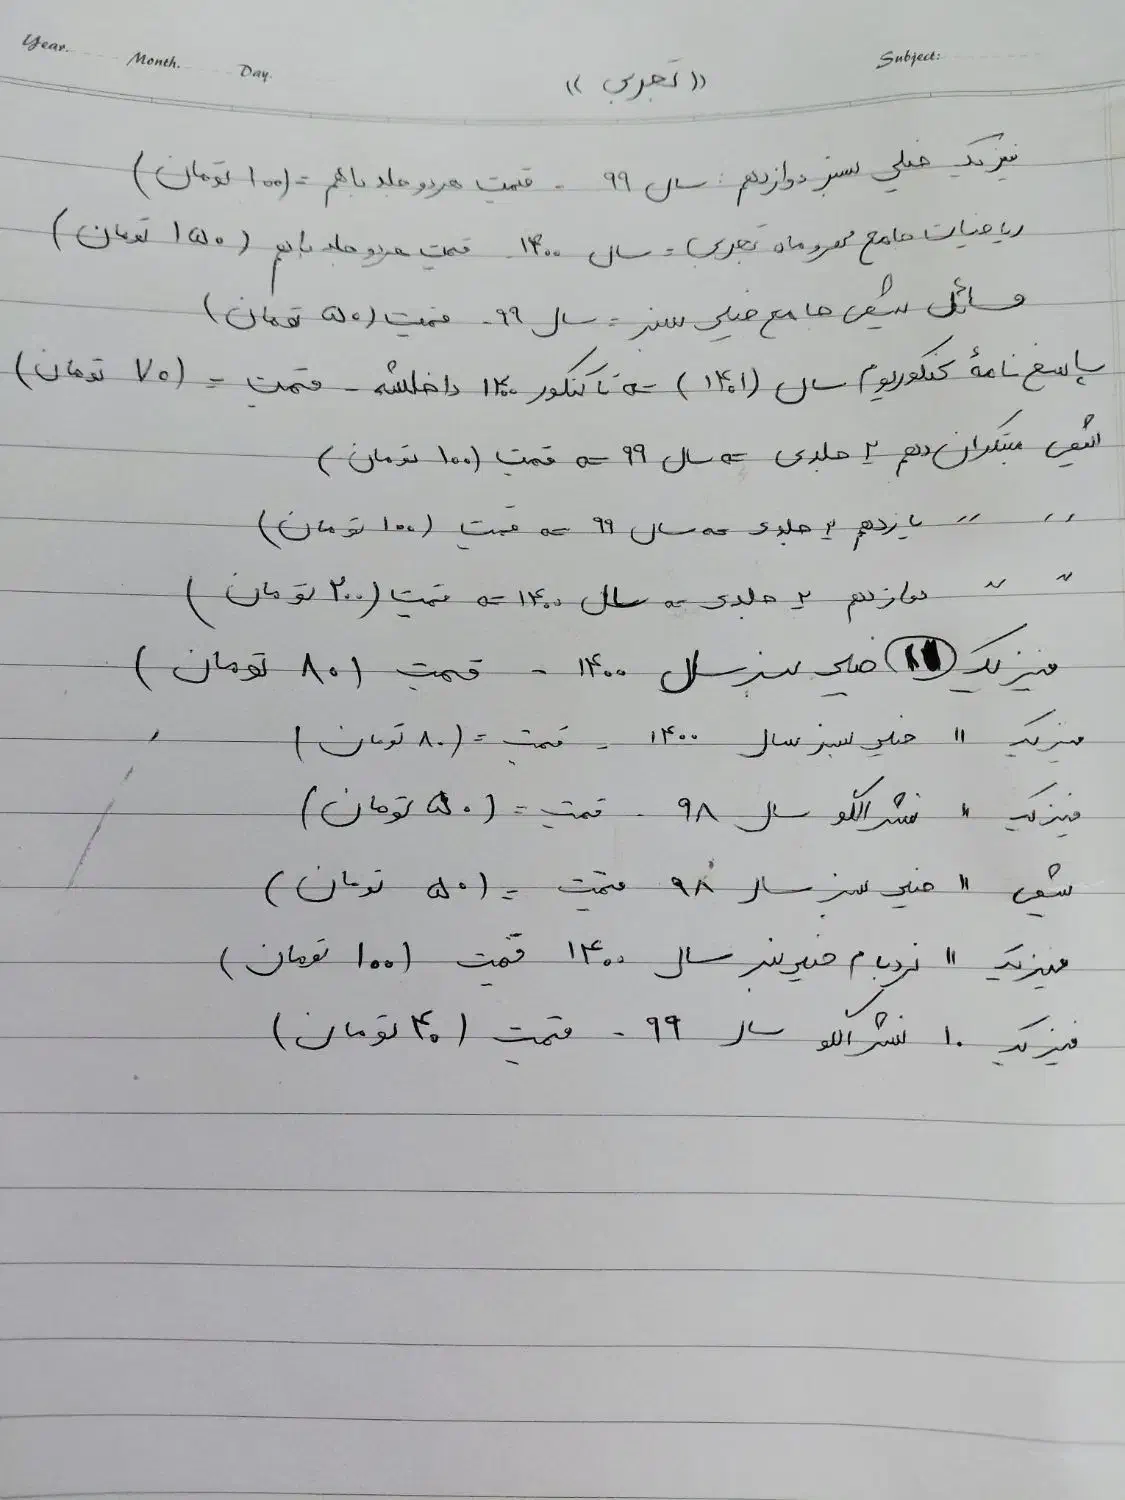 Year. Month. Day. Subject:
«تجربی»
فیزیک خیلی سبز دوازدهم: سال ۹۹ - قیمت هر دو جلد با هم = (۱۰۰ تومان)
ریاضیات جامع مهروماه تجربی = سال ۱۴۰۰ - قیمت هر دو جلد با هم (۱۵۰ تومان)
مسائل شیمی جامع خیلی سبز = سال ۹۹ - قیمت (۵۰ تومان)
پاسخ نامهٔ کنکوریوم سال (۱۴۰۱) => تا کنکور ۱۴۰۰ داخلشه - قیمت = (۷۰ تومان)
شیمی مبتکران دهم ۲ جلدی => سال ۹۹ => قیمت (۱۰۰ تومان)
〃 〃 یازدهم ۲ جلدی => سال ۹۹ => قیمت (۱۰۰ تومان)
〃 〃 دوازدهم ۲ جلدی => سال ۱۴۰۰ => قیمت (۲۰۰ تومان)
فیزیک خیلی سبز سال ۱۴۰۰ - قیمت (۸۰ تومان)
فیزیک ۱۱ خیلی سبز سال ۱۴۰۰ - قیمت = (۸۰ تومان)
فیزیک ۱۱ نشر الگو سال ۹۸ - قیمت = (۵۰ تومان)
شیمی ۱۱ خیلی سبز سال ۹۸ قیمت = (۵۰ تومان)
فیزیک ۱۱ نردبام خیلی سبز سال ۱۴۰۰ قیمت (۱۰۰ تومان)
فیزیک ۱۰ نشر الگو سال ۹۹ - قیمت (۴۰ تومان)